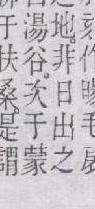 刻作暘毛扆
之地。非日出之
湯谷。次于蒙
于扶桑。是謂